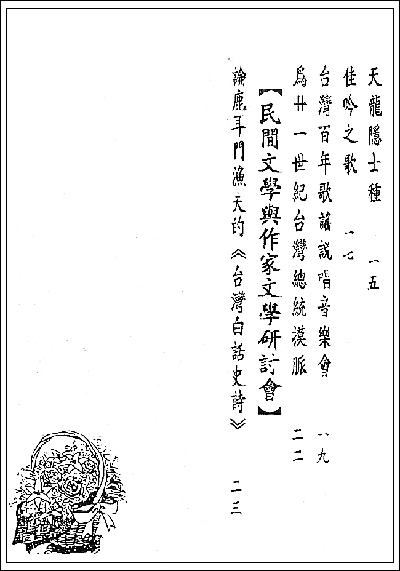 天龍隱士種 一五
佳吟之歌 一七
台灣百年歌謠說唱音樂會 一九
爲廿一世紀台灣總統漠脈 二二
【民間文學與作家文學研討會】
論鹿耳門漁夫的《台灣白話史詩》 二三